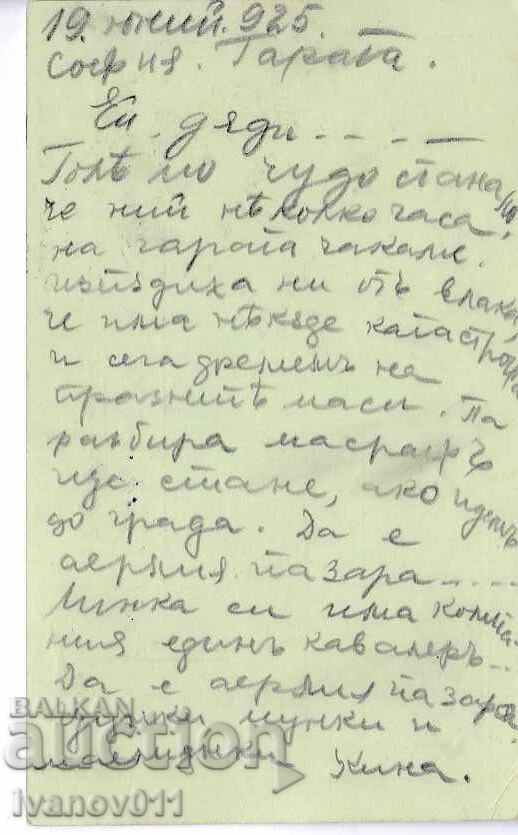 19. юний. 925.
София. Гарата.
Ей. дяди - - - —
Голѣмо чудо стана
че ний нѣколко часа
на гарата чакаме.
изпѫдиха ни отъ влака,
че има нѣкѫде катастрофа
и сега дремемъ на
празнитѣ маси. Па
разбира масрафъ
ще стане, ако идемъ
до града. Да е
аерлия пазара - - - -
Минка си има компа-
ния единъ кавалеръ...
Да е аерлия пазара
и
Кина.
BALKAN
auction
ivanov011